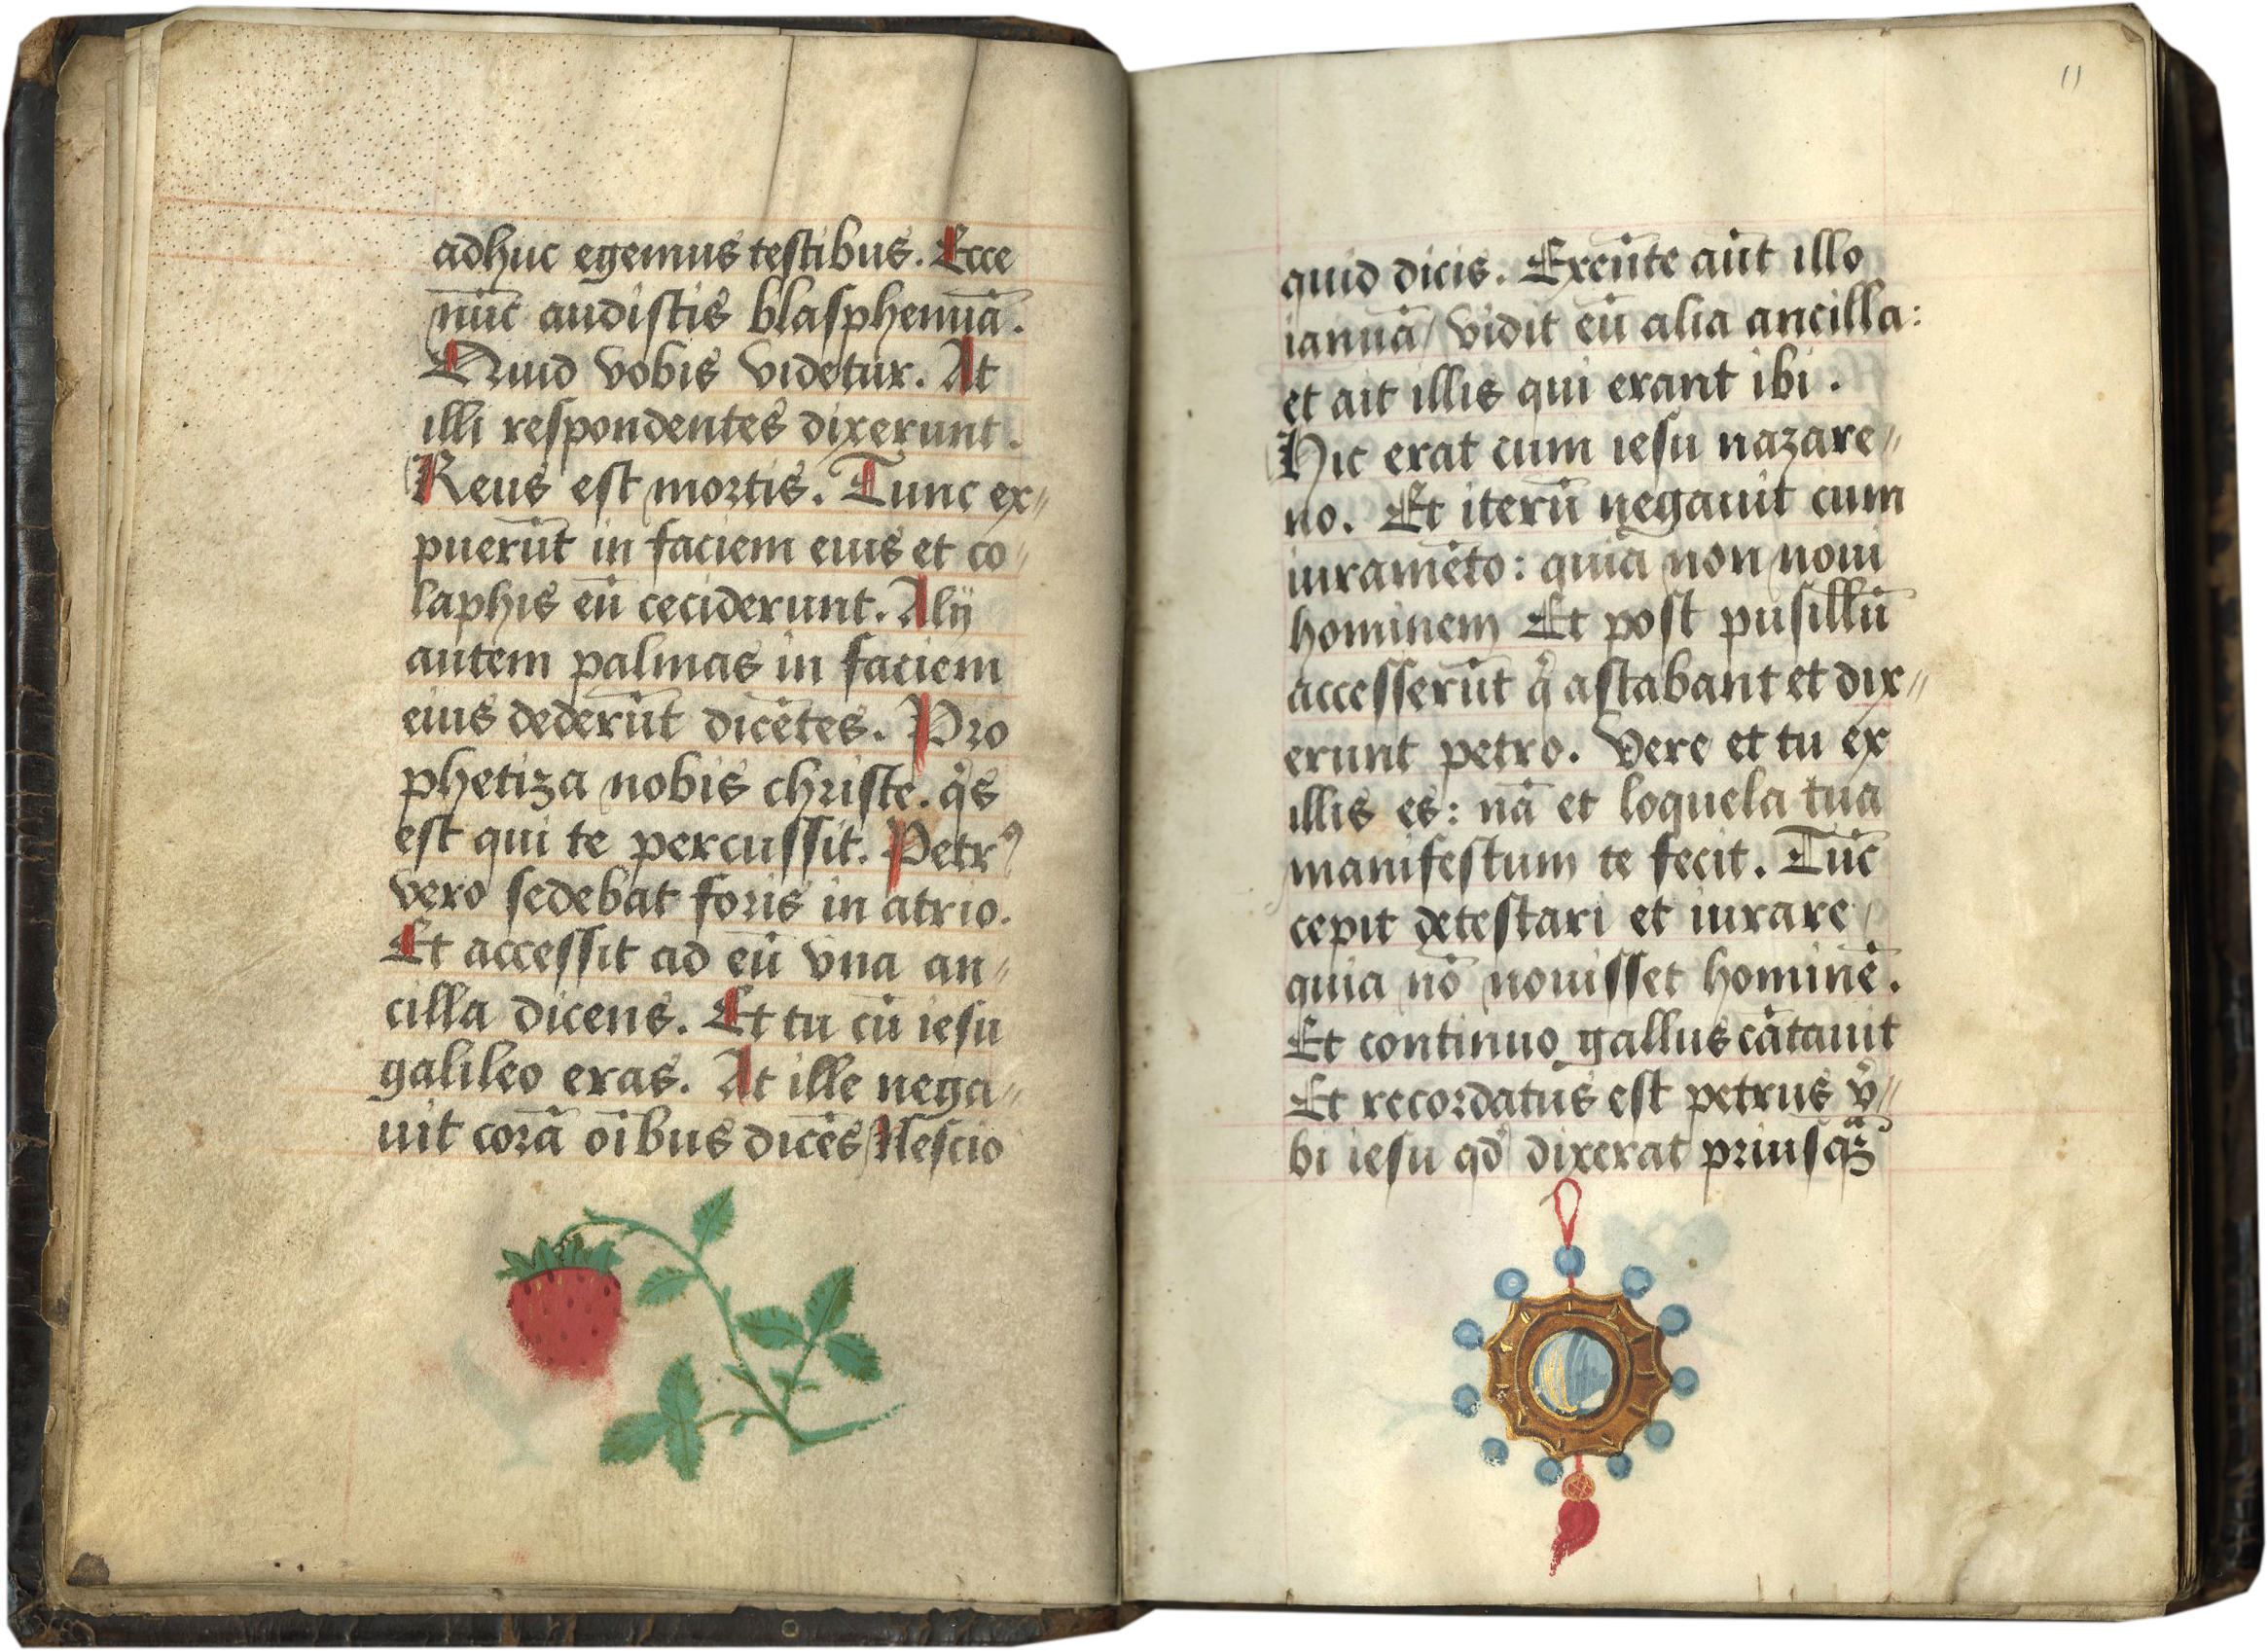 adhuc egemus testibus. Ecce
nūc audistis blasphemiā.
Quid vobis videtur. At
illi respondentes dixerunt.
Reus est mortis. Tunc ex⸗
puerūt in faciem eius et co⸗
laphis eū ceciderunt. Alij
autem palmas in faciem
eius dederūt dicētes. Pro
phetiza nobis christe. qͥs
est qui te percussit. Petrꝰ
vero sedebat foris in atrio.
Et accessit ad eū vna an⸗
cilla dicens. Et tu cū iesu
galileo eras. At ille nega⸗
uit corā oībus dicēs Nescio
11
quid dicis. Exeūte aūt illo
ianuā / vidit eū alia ancilla:
et ait illis qui erant ibi.
Hic erat cum iesu nazare⸗
no. Et iterū negauit cum
iuramēto: quia non noui
hominem Et post pusillū
accesserūt qͥ astabant et dix⸗
erunt petro. Vere et tu ex
illis es: nā et loquela tua
manifestum te fecit. Tūc
cepit detestari et iurare /
quia nō nouisset hominē.
Et continuo gallus cātauit
Et recordatus est petrus v̓⸗
bi iesu qd̓ dixerat priusqᷓꝫ